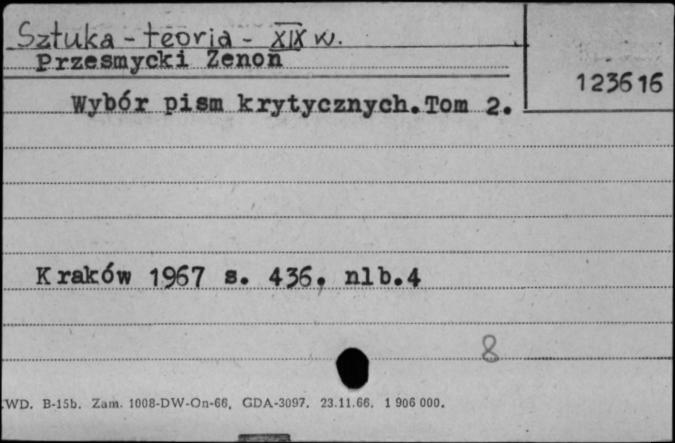 Sztuka - teoria - XIX w.
Przesmycki Zenon
123616
Wybór pism krytycznych. Tom 2.
Kraków 1967 s. 436, nlb.4
8
WD. B-15b. Zam. 1008-DW-On-66, GDA-3097. 23.11.66. 1 906 000.